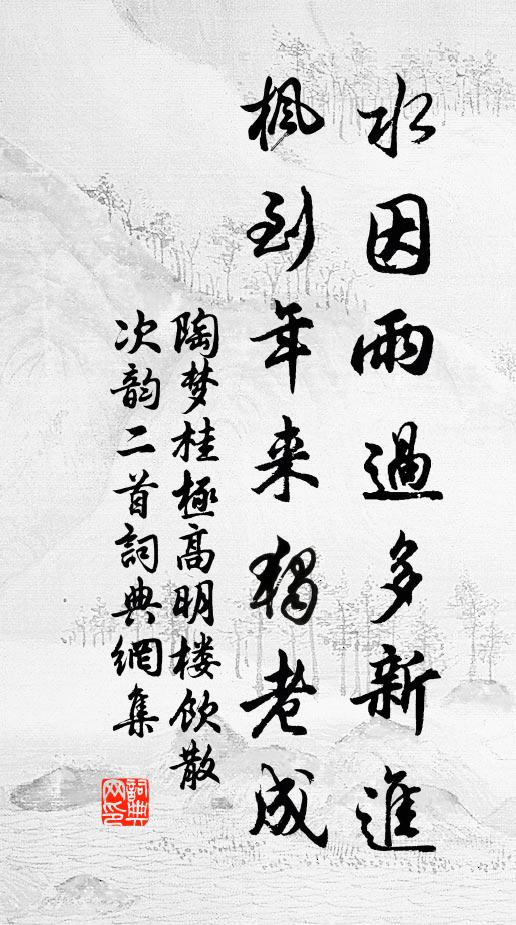 水因雨過多新進
枫到年来獨老成
陶梦桂極高明楼饮散
次韵二首詞典網集
詞典網印